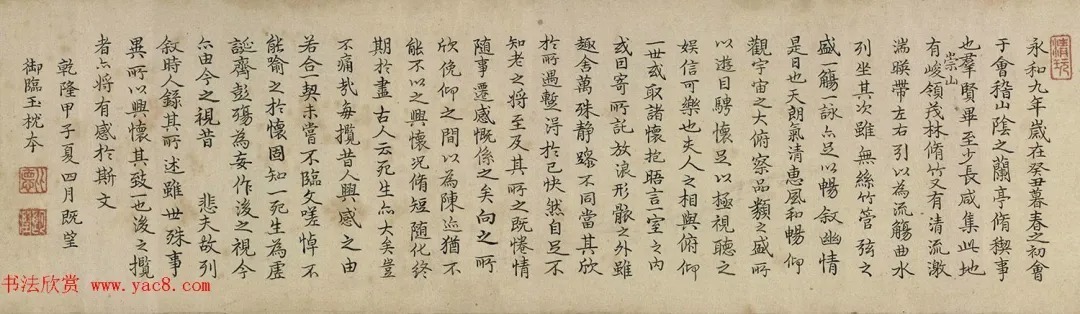 永和九年歲在癸丑暮春之初會
于會稽山陰之蘭亭脩稧事
也羣賢畢至少長咸集此地
有崇山峻領茂林脩竹又有清流激
湍暎帶左右引以為流觴曲水
列坐其次雖無絲竹管弦之
盛一觴一詠亦足以暢敘幽情
是日也天朗氣清惠風和暢仰
觀宇宙之大俯察品類之盛所
以遊目騁懷足以極視聽之
娛信可樂也夫人之相與俯仰
一世或取諸懷抱晤言一室之內
或因寄所託放浪形骸之外雖
趣舍萬殊静躁不同當其欣
於所遇蹔得於己快然自足不
知老之將至及其所之既惓情
隨事遷感慨係之矣向之所
欣俛仰之間以為陳迹猶不
能不以之興懷況脩短隨化終
期於盡古人云死生亦大矣豈
不痛哉每攬昔人興感之由
若合一契未嘗不臨文嗟悼不
能喻之於懷固知一死生為虛
誕齊彭殤為妄作後之視今
亦由今之視昔 悲夫故列
敘時人錄其所述雖世殊事
異所以興懷其致一也後之攬
者亦將有感於斯文
乾隆甲子夏四月既望
御臨玉枕本
书法欣赏 www.yac8.com